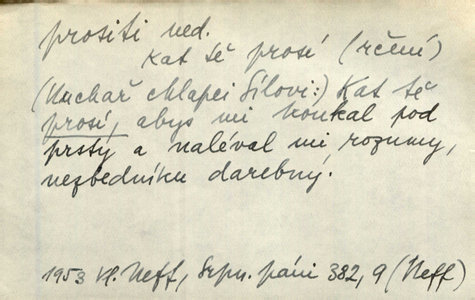 prositi ned.
Kat tě prosí (rčení)
(Kuchař chlapci Sílovi:) Kat tě
prosí, abys mi koukal pod
prsty a naléval mi rozumy,
nezbedníku darebný.
1953 Vl. Neff, Srpn. páni 382, 9 (Neff)